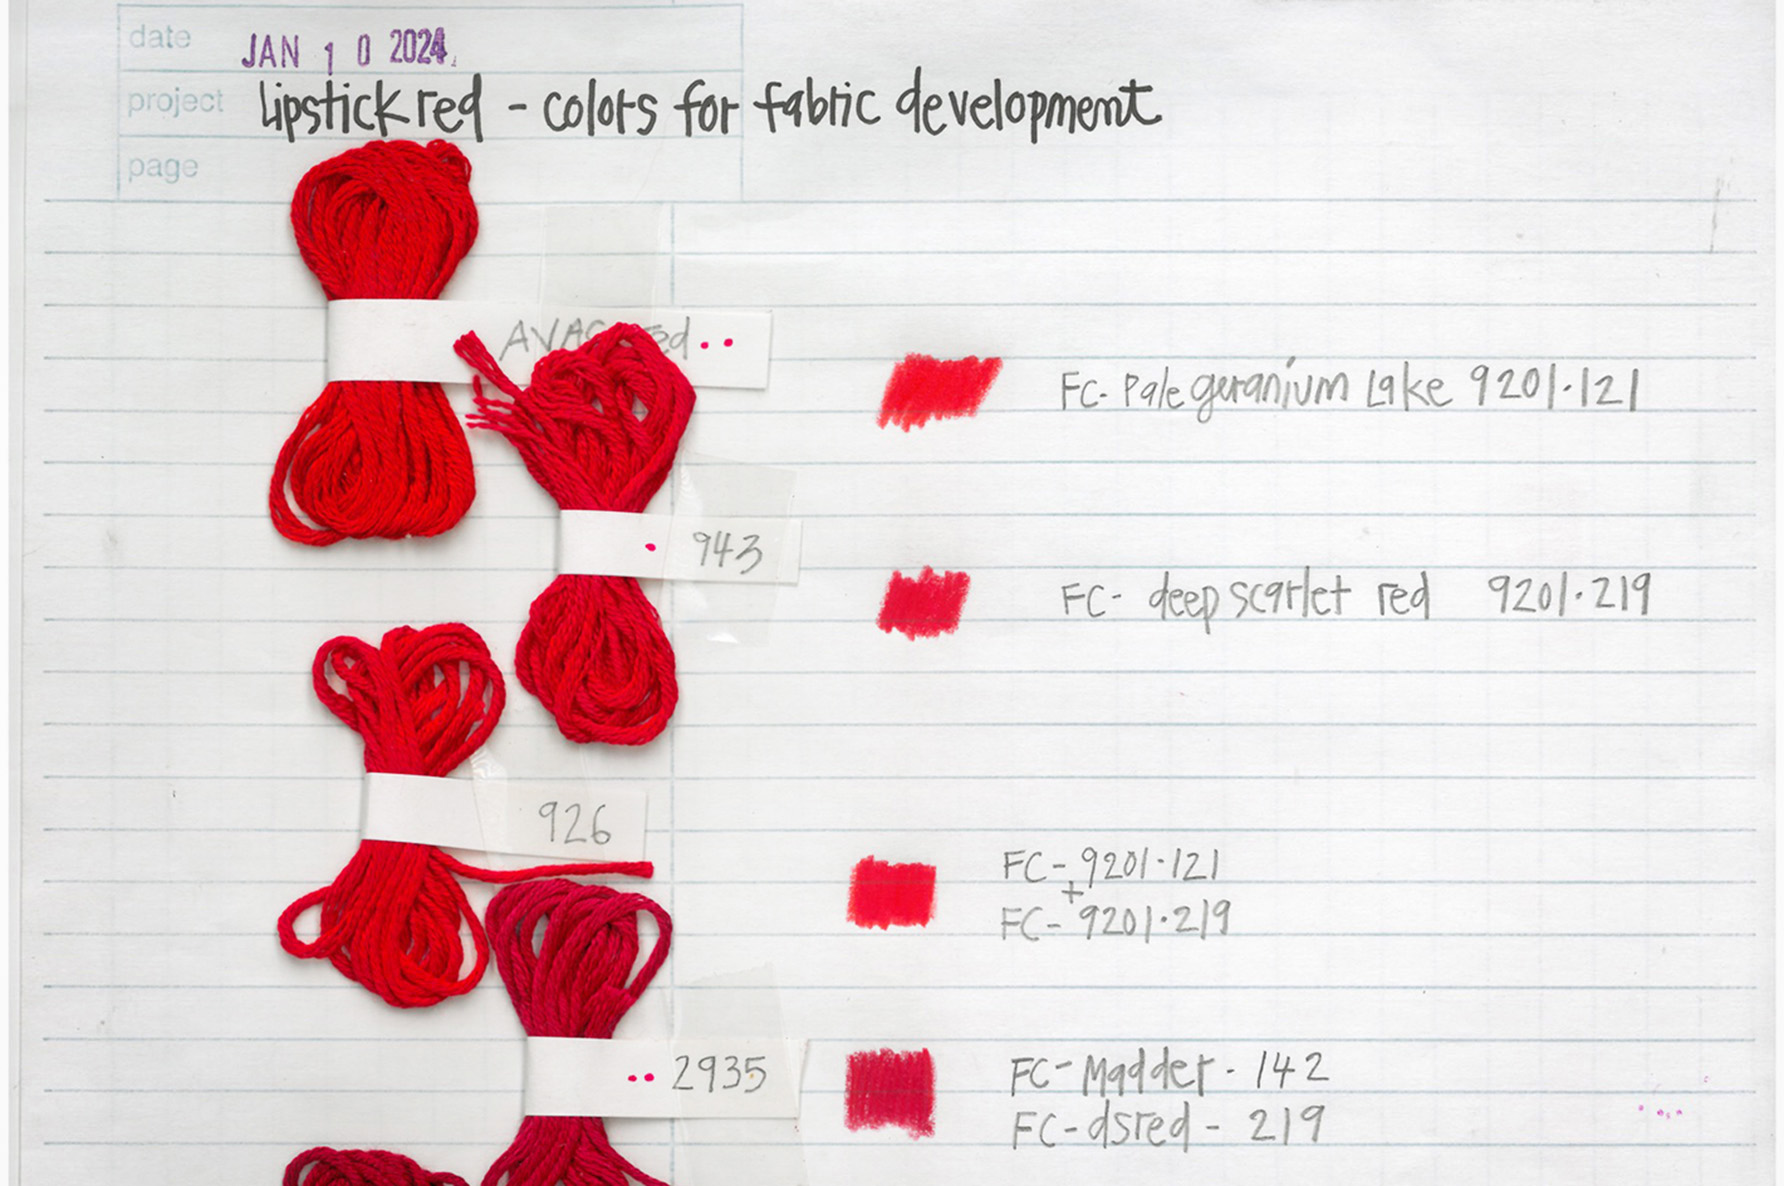 date JAN 10 2024
project Lipstick red - colors for fabric development
page
FC- Pale geranium Lake 9201·121
943
FC- deep scarlet red 9201·219
926
FC- 9201·121
+
FC- 9201·219
2935
FC- Madder - 142
FC- dsred - 219